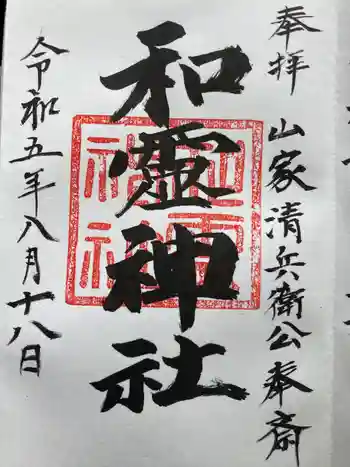 奉拝
山家清兵衛公奉斎
和霊神社
令和五年八月十八日
和霊
神社